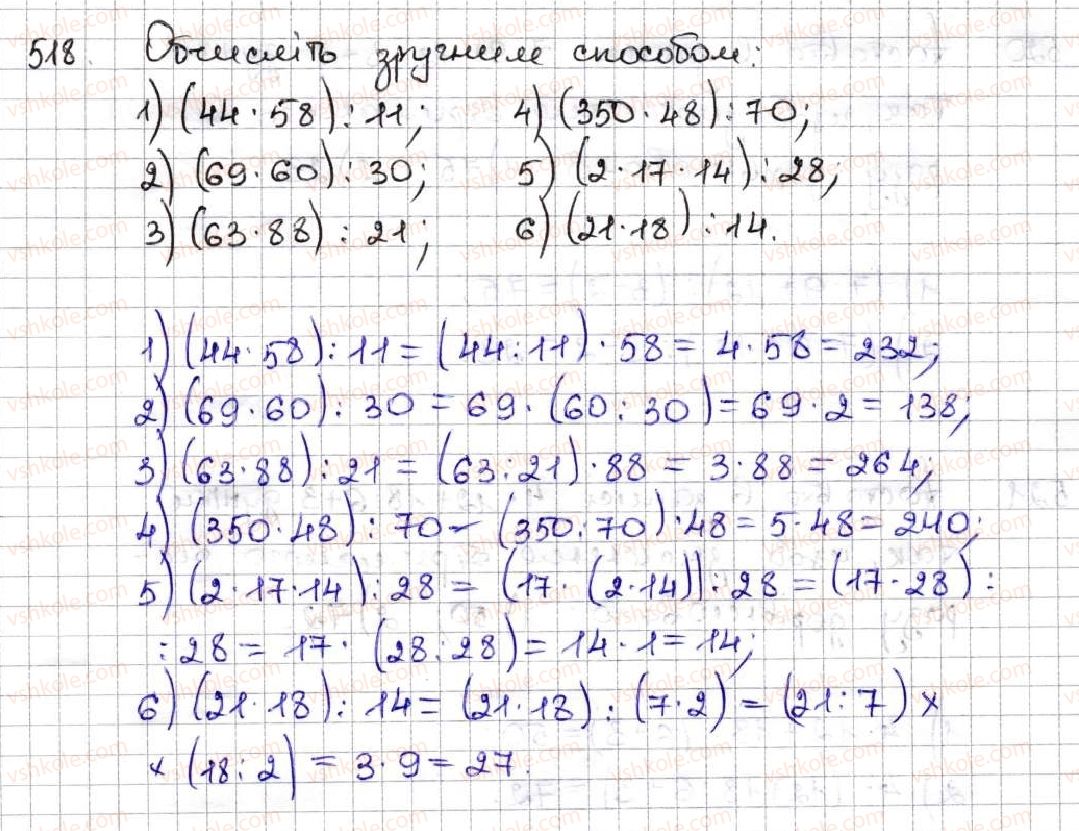 518. Обчисліть зручним способом:
1) (44·58):11; 4) (350·48):70;
2) (69·60):30; 5) (2·17·14):28;
3) (63·88):21; 6) (21·18):14.
1) (44·58):11=(44:11)·58=4·58=232;
2) (69·60):30=69·(60:30)=69·2=138;
3) (63·88):21=(63:21)·88=3·88=264;
4) (350·48):70-(350:70)·48=5·48=240;
5) (2·17·14):28=(17·(2·14)):28=(17·28):
:28=17·(28:28)=14·1=14;
6) (21·18):14=(21·18):(7·2)=(21:7)×
×(18:2)=3·9=27.